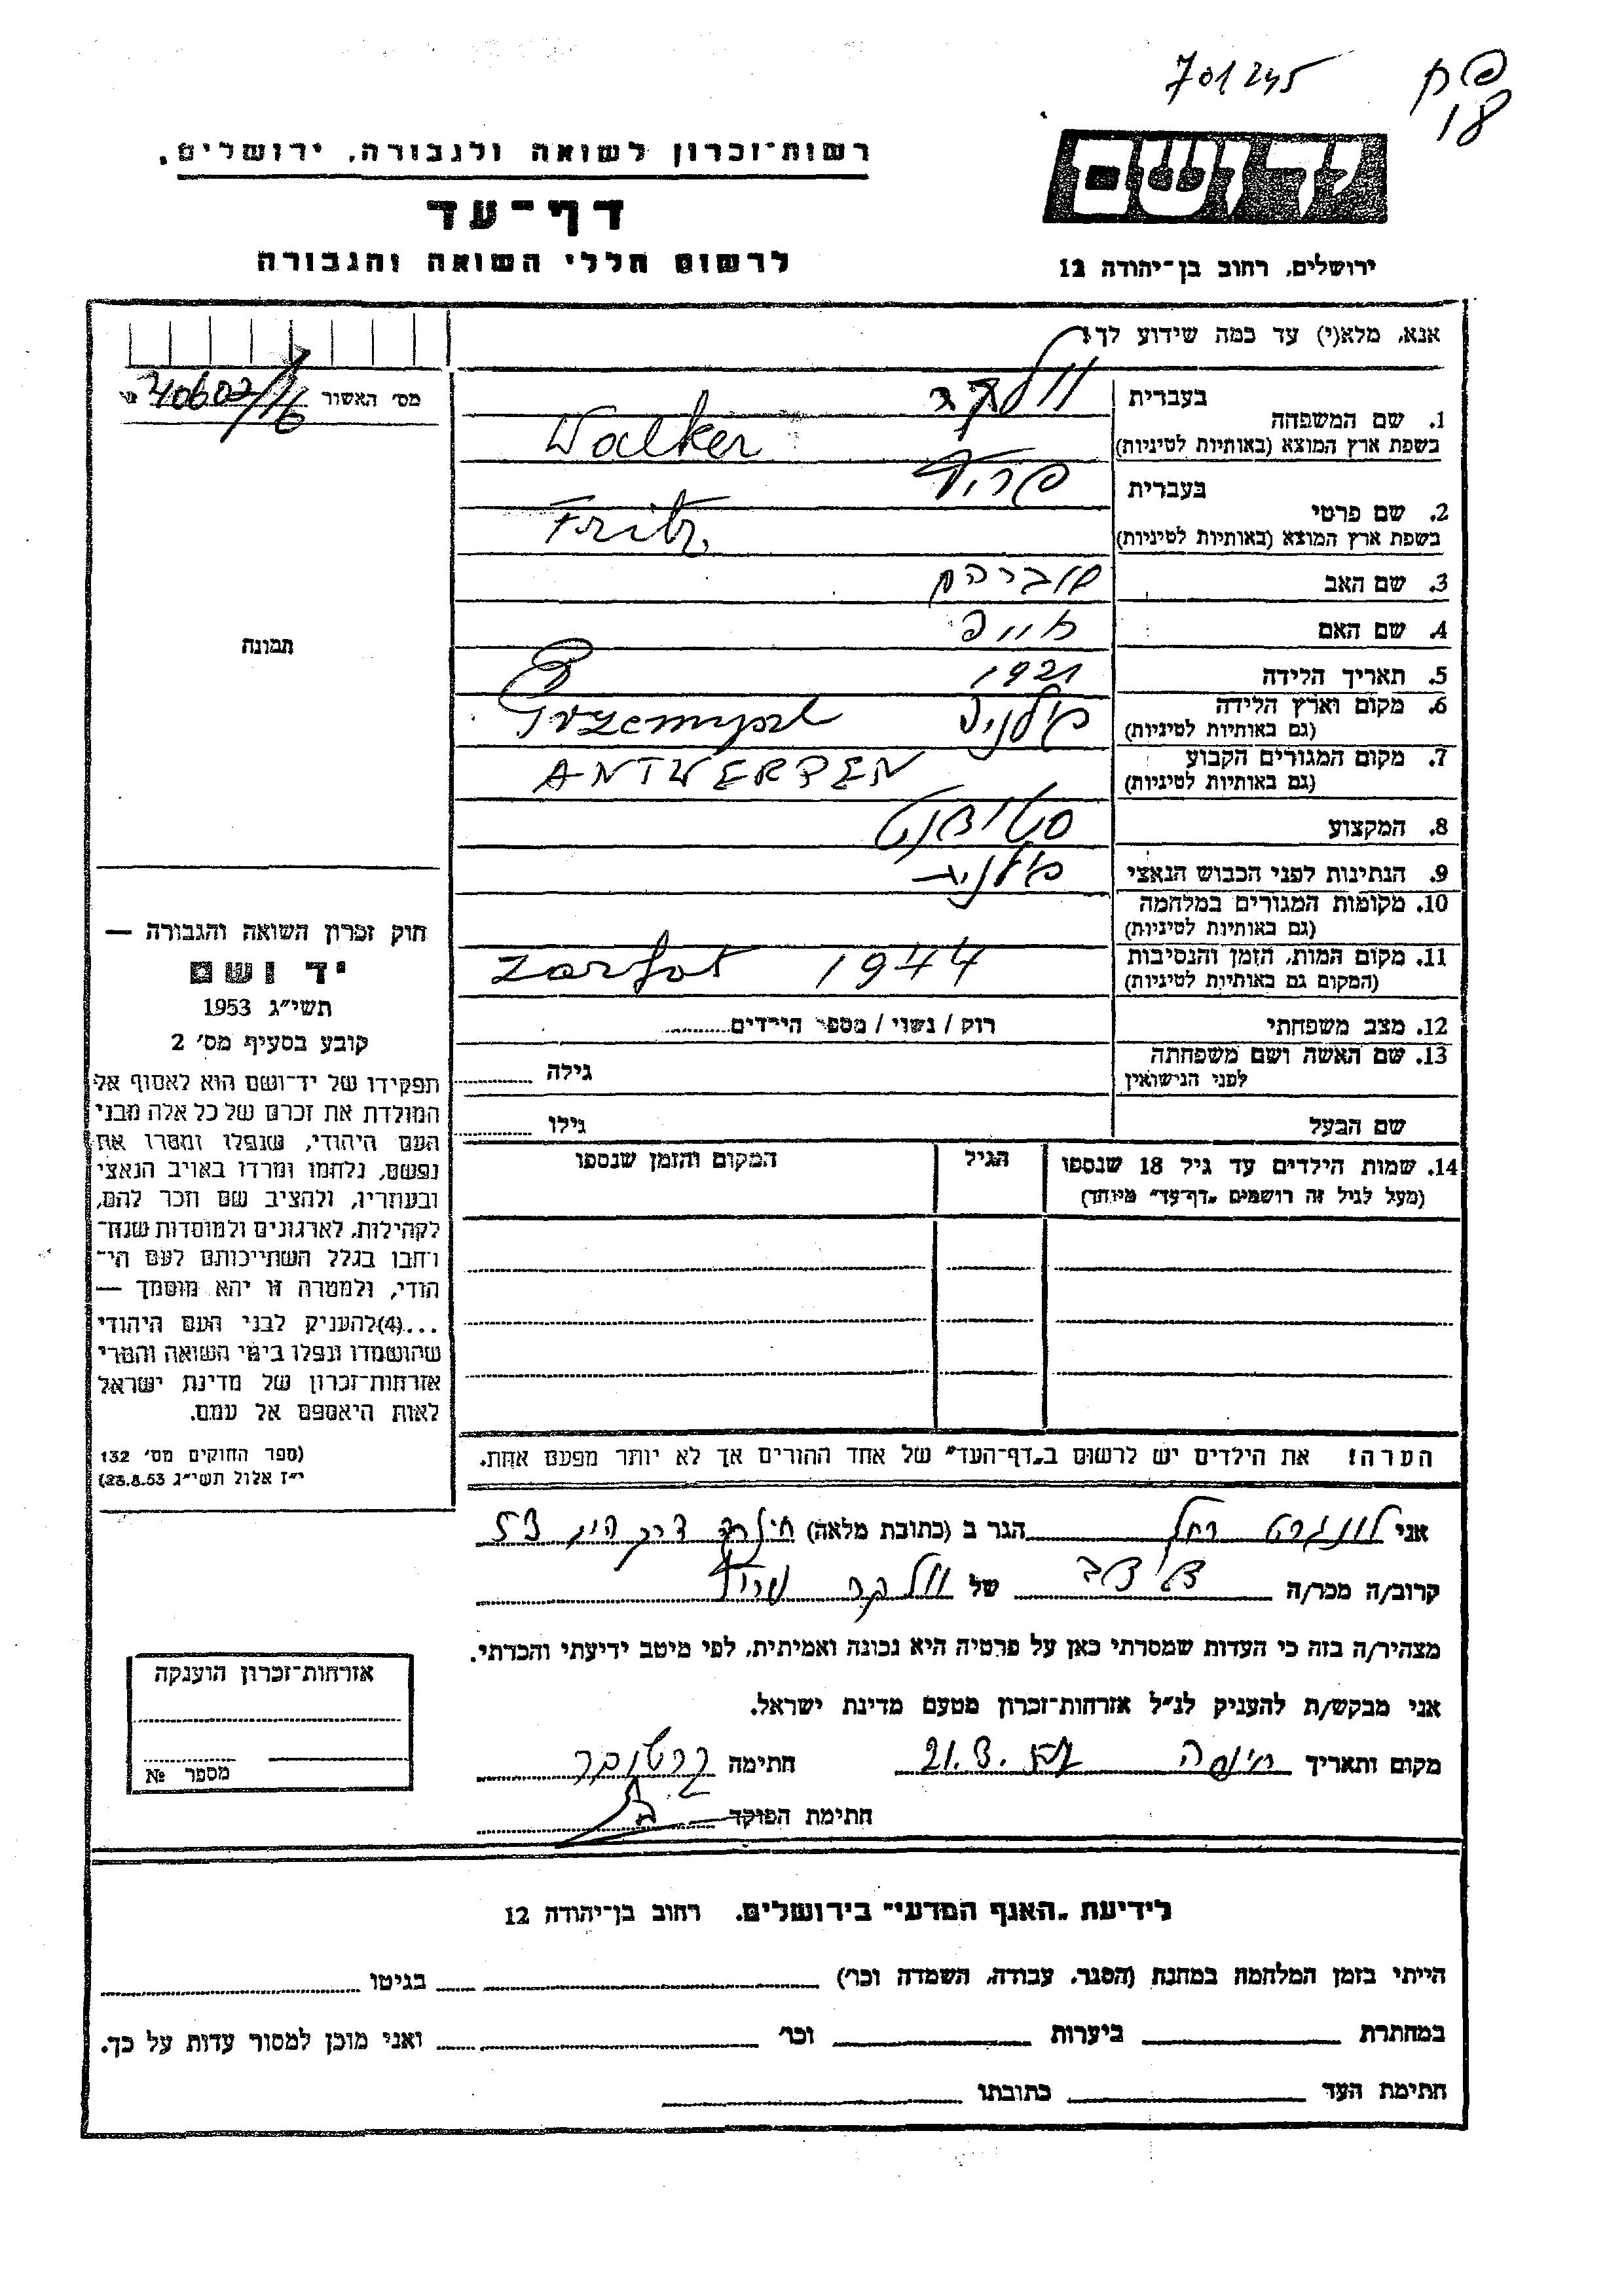 701245
פק
18
יד ושם
רשות־זכרון לשואה ולגבורה, ירושלים.
דף־עד
לרשום חללי השואה והגבורה
ירושלים, רחוב בן־יהודה 12
אנא, מלא(י) עד כמה שידוע לך!
מס׳ האשור
בעברית ולקר
1. שם המשפחה
בשפת ארץ המוצא (באותיות לטיניות) Walker
בעברית פריץ
2. שם פרטי
בשפת ארץ המוצא (באותיות לטיניות) Fritz
3. שם האב אברהם
4. שם האם
5. תאריך הלידה 1921
6. מקום וארץ הלידה פולניה Przemysl
(גם באותיות לטיניות)
7. מקום המגורים הקבוע ANTWERPEN
(גם באותיות לטיניות)
8. המקצוע סטודנט
9. הנתינות לפני הכבוש הנאצי פולנית
10. מקומות המגורים במלחמה
(גם באותיות לטיניות)
11. מקום המות, הזמן והנסיבות Zarfat 1944
(המקום גם באותיות לטיניות)
12. מצב משפחתי רוק / נשוי / מספר הילדים
13. שם האשה ושם משפחתה גילה
לפני הנישואין
שם הבעל גילו
14. שמות הילדים עד גיל 18 שנספו הגיל המקום והזמן שנספו
(מעל לגיל זה רושמים „דף־עד״ מיוחד)
הערה! את הילדים יש לרשום ב„דף־העד״ של אחד ההורים אך לא יותר מפעם אחת.
תמונה
חוק זכרון השואה והגבורה —
יד ושם
תשי״ג 1953
קובע בסעיף מס׳ 2
תפקידו של יד־ושם הוא לאסוף אל
המולדת את זכרם של כל אלה מבני
העם היהודי, שנפלו ומסרו את
נפשם, נלחמו ומרדו באויב הנאצי
ובעוזריו, ולהציב שם וזכר להם,
לקהילות, לארגונים ולמוסדות שנח־
רבו בגלל השתייכותם לעם הי־
הודי, ולמטרה זו יהא מוסמך —
...(4)להעניק לבני העם היהודי
שהושמדו ונפלו בימי השואה והמרי
אזרחות־זכרון של מדינת ישראל
לאות היאספם אל עמם.
(ספר החוקים מס׳ 132
י״ז אלול תשי״ג 23.8.53)
אני רחל הגר ב (כתובת מלאה) חיפה דרך הים 53
קרוב/ה מכר/ה של ולקר פריץ
מצהיר/ה בזה כי העדות שמסרתי כאן על פרטיה היא נכונה ואמיתית, לפי מיטב ידיעתי והכרתי.
אני מבקש/ת להעניק לנ״ל אזרחות־זכרון מטעם מדינת ישראל.
מקום ותאריך חיפה 21.3. חתימה
חתימת הפוקד
אזרחות־זכרון הוענקה
מספר №
לידיעת „האגף המדעי״ בירושלים, רחוב בן־יהודה 12
הייתי בזמן המלחמה במחנה (הסגר, עבודה, השמדה וכו׳) בגיטו
במחתרת ביערות וכו׳ ואני מוכן למסור עדות על כך.
חתימת העד כתובתו